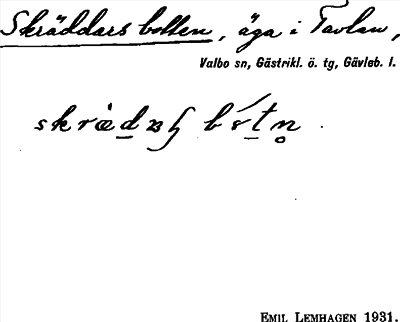 Skräddarsbotten, äga i Tavlan,
Valbo sn, Gästrikl. ö. tg, Gävleb. l.
EMIL LEMHAGEN 1931.